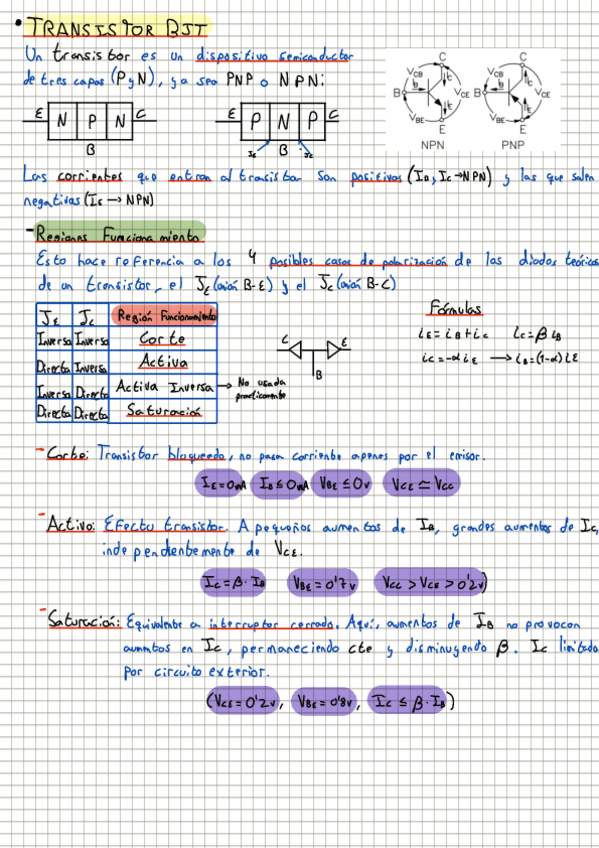 • TRANSISTOR BJT
Un transistor es un dispositivo semiconductor
de tres capas (P y N), ya sea PNP o NPN:
E N P N C
B
E P N P C
B
JE JC
C
VCB
IC
IB
B
VCE
VBE
IE
E
NPN
C
VCB
IC
IB
B
VCE
VBE
IE
E
PNP
Las corrientes que entran al transistor son positivas (IB, IC → NPN) y las que salen
negativas (IE → NPN)
- Regiones Funcionamiento
Esto hace referencia a los 4 posibles casos de polarización de los diodos teóricos
de un transistor, el JE (unión B-E) y el JC (unión B-C)
JE JC Región Funcionamiento
Inversa Inversa Corte
Directa Inversa Activa
Inversa Directa Activa Inversa → No usada
practicamente
Directa Directa Saturación
C E
B
Fórmulas
iE = iB + iC iC = β iB
iC = -α iE → iB = (1-α) iE
- Corte: Transistor bloqueado, no pasa corriente apenas por el emisor.
IE = 0mA IB ≤ 0mA VBE ≤ 0v VCE ≃ VCC
- Activo: Efecto transistor. A pequeños aumentos de IB, grandes aumentos de IC,
independientemente de VCE.
IC = β · IB VBE = 0'7v VCC > VCE > 0'2v)
- Saturación: Equivalente a interruptor cerrado. Aquí, aumentos de IB no provocan
aumntos en IC, permaneciendo cte y disminuyendo β. IC limitada
por circuito exterior.
(VCE = 0'2v, VBE = 0'8v, IC ≤ β · IB)